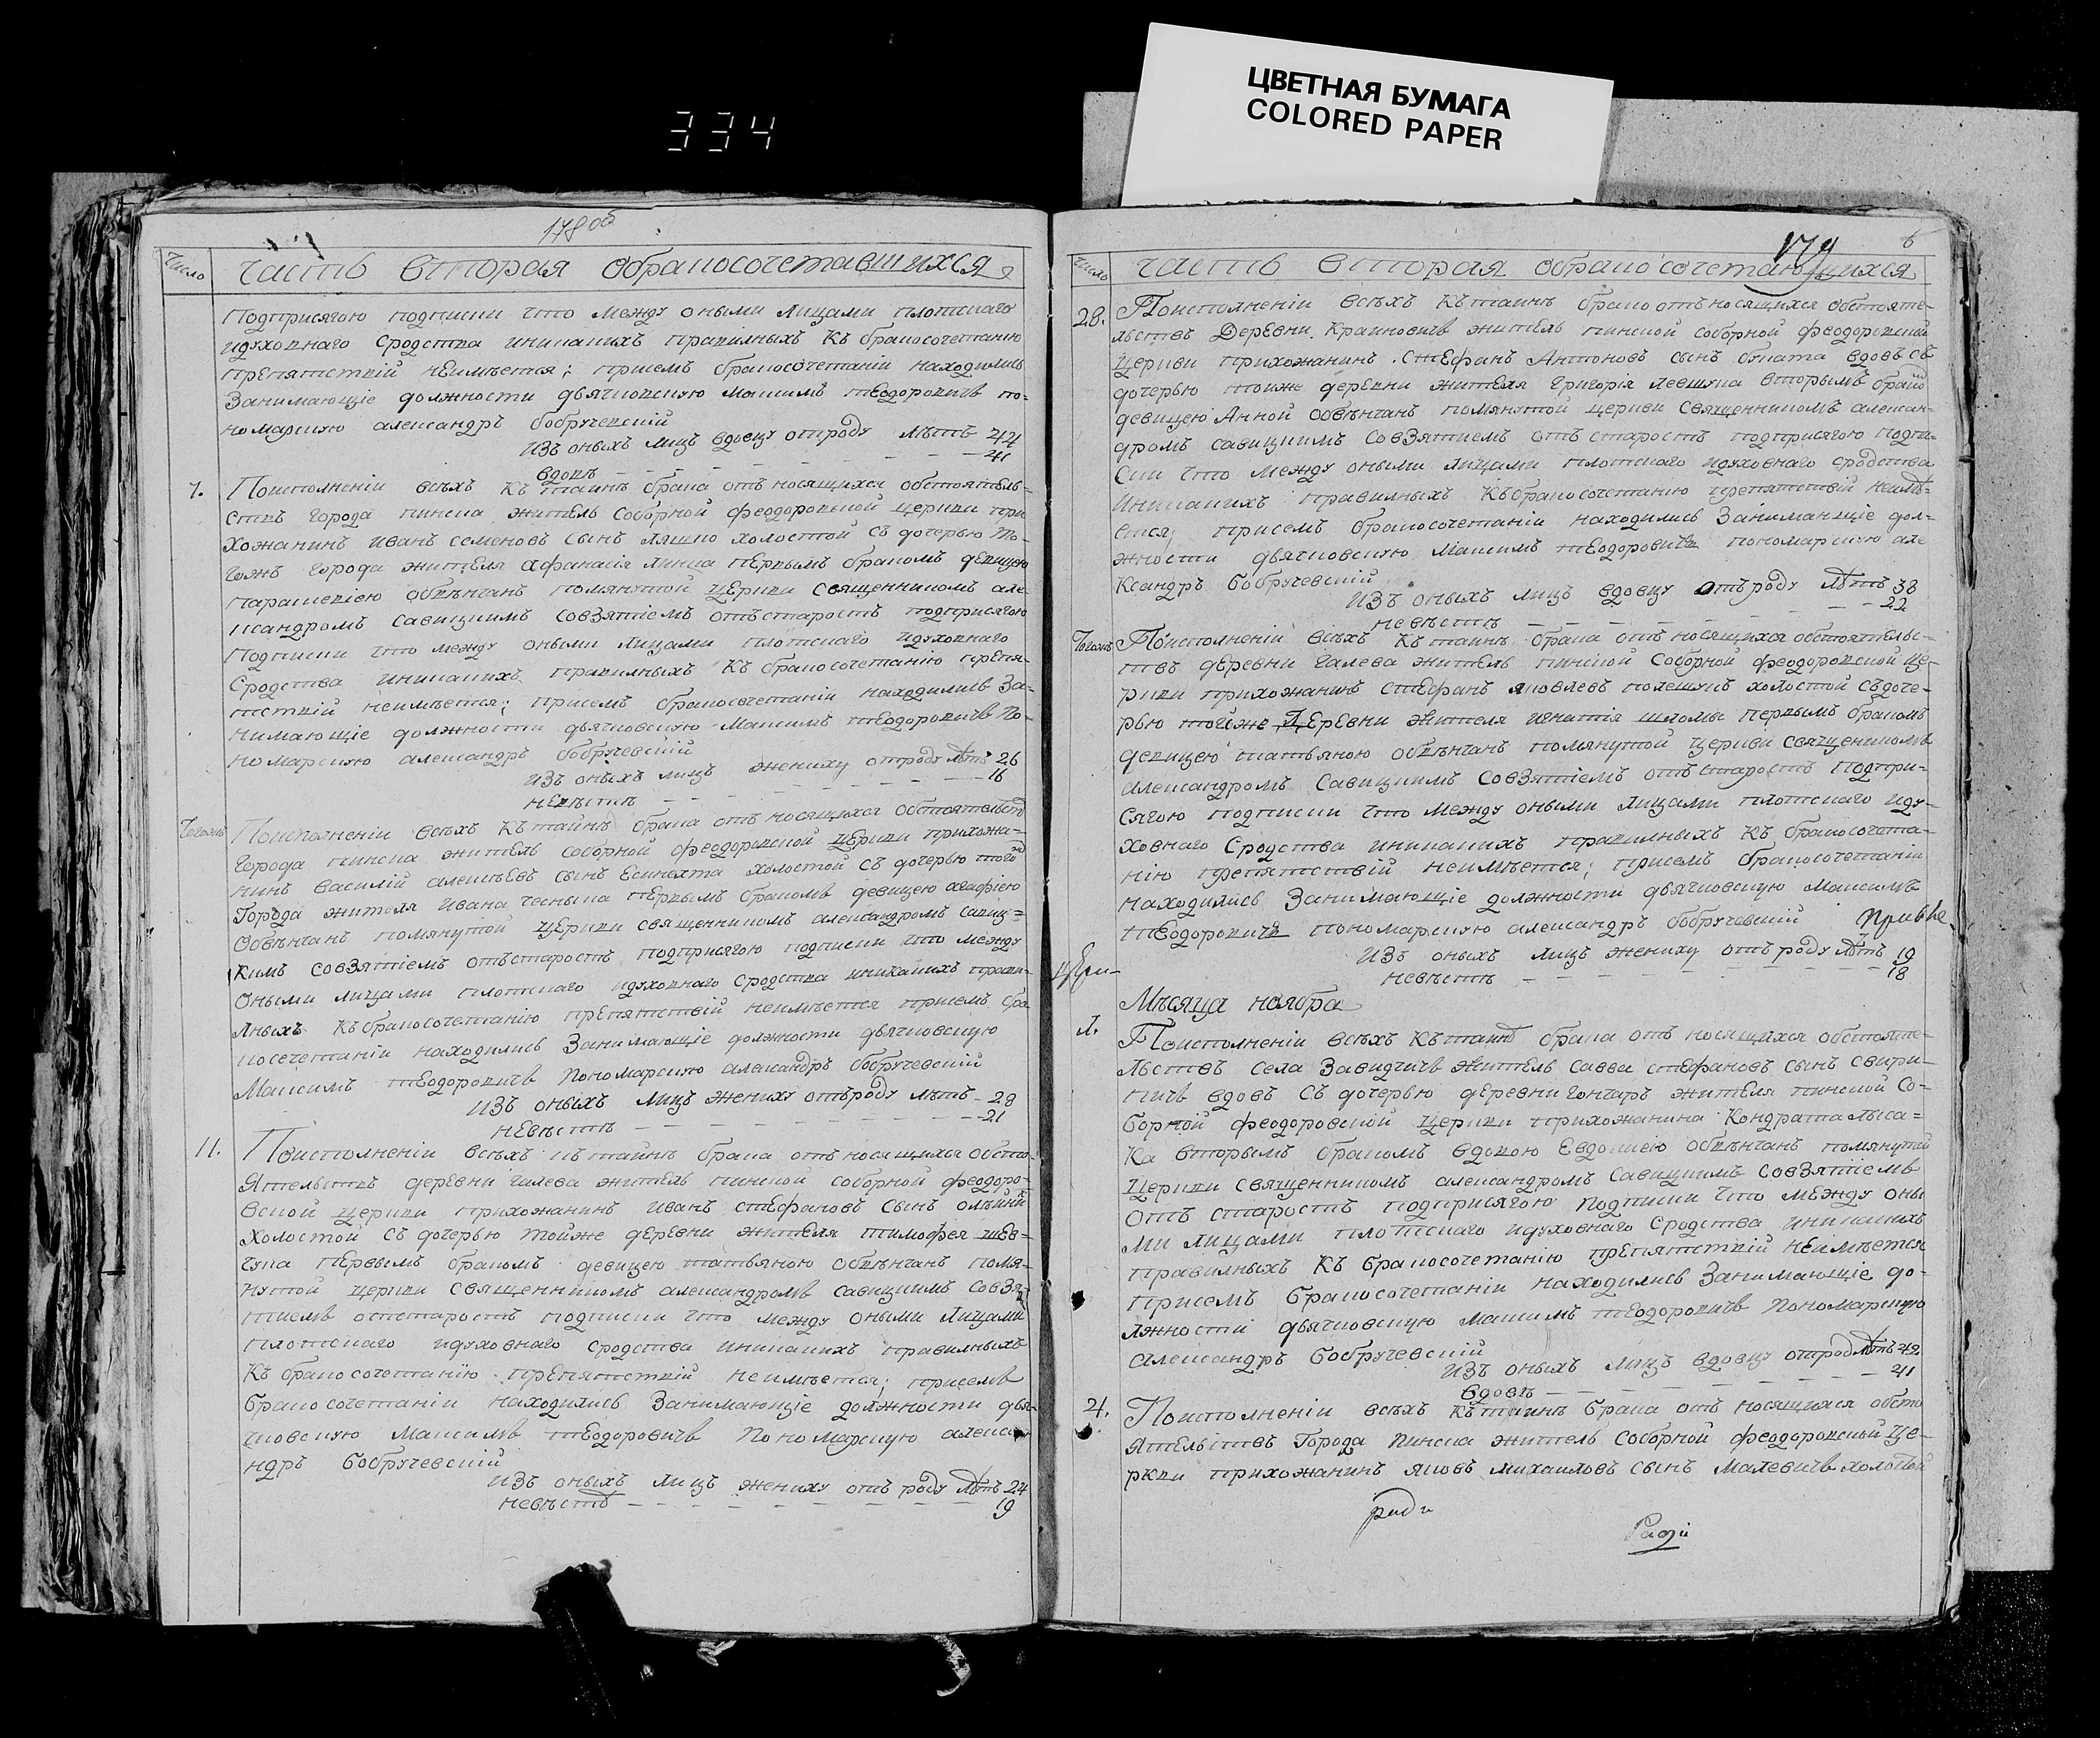 334
ЦВЕТНАЯ БУМАГА
COLORED PAPER
178 об
Число
Часть вторая обракосочетавшихся
Подприсягою подписки что между оными лицами плотскаго
идуховнаго сродства иникакихъ правилныхъ къ бракосочетанию
препятствий неимѣется; присемъ бракосочетаніи находились
Занимающіе должности дьячковскую Максимъ теодоровичь по-
номарскую александръ бобручевскій
изъ оныхъ лицъ вдовцу отроду лѣтъ 44
вдовѣ — 41
7. Поисполненіи всѣхъ къ таинѣ брака отъ носящихся обстоятель-
ствъ города пинска житель соборной феодоровской церкви при
хожанинъ иванъ семеновъ сынъ ляшко холостой съ дочерью то-
гожъ города жителя афанасія линка первымъ бракомъ девицею
параскевіею обвѣнчанъ помянутой церкви священникомъ але
ксандромъ савицкимъ совзятіемъ отъстаростъ подприсягою
подписки что между оными лицами плотскаго идуховнаго
сродства иникакихъ правилныхъ къ бракосочетанію препя-
тствій неимѣется; присемъ бракосочетаніи находились за-
нимающіе должности дьячковскую Максимъ теодоровичь по-
номарскую александръ бобручевскій
изъ оныхъ лицъ жениху отроду лѣтъ 26
невѣстѣ — 16
Тогожъ Поисполненіи всѣхъ къ таинѣ брака отъ носящихся обстоятельствъ
города пинска житель соборной феодоровской церкви прихожа-
нинъ василій алексѣевъ сынъ холостой съ дочерью тогожъ
города жителя ивана первымъ бракомъ девицею агафіею
Обвѣнчанъ помянутой церкви священникомъ александромъ савиц-
кимъ совзятіемъ отъстаростъ подприсягою подписки что между
Оными лицами плотскаго идуховнаго сродства иникакихъ прави-
лныхъ къ бракосочетанію препятствій неимѣется присемъ бра
косечетаніи находились занимающіе должности дьячковскую
Максимъ теодоровичь пономарскую александръ бобручевскій
изъ оныхъ лицъ жениху отъроду лѣтъ 28
невѣстѣ — 21
11. Поисполненіи всѣхъ къ таинѣ брака отъ носящихся обсто-
ятельствъ деревни галева житель пинской соборной феодоро-
вской церкви прихожанинъ иванъ стефановъ сынъ
холостой съ дочерью тойже деревни жителя тимофея шев-
чука первымъ бракомъ девицею татьяною обвѣнчанъ помя-
нутой церкви священникомъ александромъ савицкимъ совзя-
тиемъ отстаростъ подписки что между оными лицами
плотскаго идуховнаго сродства иникакихъ правилныхъ
къ бракосочетанію препятствій неимѣется; присемъ
бракосочетаніи находились занимающіе должности дья-
чковскую Максимъ теодоровичь пономарскую алекса
ндръ бобручевскій
изъ оныхъ лицъ жениху отъ роду лѣтъ 24
невѣстѣ — 19
179
6
Число
Часть вторая обракосочетающихся
28. Поисполненіи всѣхъ къ таинѣ брако отъносящихся обстояте-
льствъ деревни Краиновичь житель пинской соборной феодоровской
церкви прихожанинъ стефанъ Антоновъ сынъ вдовъ съ
дочерью тоиже деревни жителя григорія левшука вторымъ бракомъ
девицею Анной обвѣнчанъ помянутой церкви священникомъ алексан-
дромъ савицкимъ совзятиемъ отъ старостъ подприсягою подпи-
ски что между оными лицами плотскаго идуховнаго сродства
иникакихъ правилныхъ къбракосочетанию препятствій неимѣ-
ется; присемъ бракосочетаніи находились занимающіе дол-
жности дьячковскую Максимъ теодоровичь пономарскую але
ксандръ бобручевскій
изъ оныхъ лицъ вдовцу отъроду лѣтъ 38
невѣстѣ — 22
Тогожъ Поисполненіи всѣхъ къ таинѣ брака отъ носящихся обстоятельс-
твъ деревни галева житель пинской соборной феодоровской це-
ркви прихожанинъ стефанъ яковлевъ полешукъ холостой съдоче-
рью тойже деревни жителя игнатія шломы первымъ бракомъ
девицею татьяною обвѣнчанъ помянутой церкви священикомъ
александромъ савицкимъ совзятіемъ отъ старостъ подпри-
сягою подписки что между оными лицами плотскаго иду-
ховнаго сродства иникакихъ правилныхъ къ бракосочета-
нію препятствій неимѣется; присемъ бракосочетаніи
находились занимающіе должности дьячковскую Максимъ
теодоровичь пономарскую александръ бобручевскій
изъ оныхъ лицъ жениху отъ роду лѣтъ 19
невѣстѣ — 18
Мѣсяца ноября
Поисполненіи всѣхъ къ таинѣ брака отъ носящихся обстояте-
льствъ села Завидчичь житель савва стефановъ сынъ свири-
пичь вдовъ съ дочерью деревни гончаръ жителя пинской со-
борной феодоровской церкви прихожанина Кондрата лыса-
ка вторымъ бракомъ вдовою Евдокиею обвѣнчанъ помянутой
церкви священникомъ александромъ савицкимъ совзятіемъ
отъ старостъ подприсягою подписки что между оны
ми лицами плотскаго идуховнаго сродства иникакихъ
правилныхъ къ бракосочетанію препятствій неимѣется
присемъ бракосочетаніи находились занимающіе до-
лжности дьячковскую максимъ теодоровичь пономарскую
александръ бобручевскій
изъ оныхъ лицъ вдовцу отрод лѣтъ 42
вдовѣ — 41
4. Поисполненіи всѣхъ къ таинѣ брака отъ носящихся обсто
ятельствъ города пинска житель соборной феодоровской це-
ркви прихожанинъ яковъ михаиловъ сынъ малевичь холостой